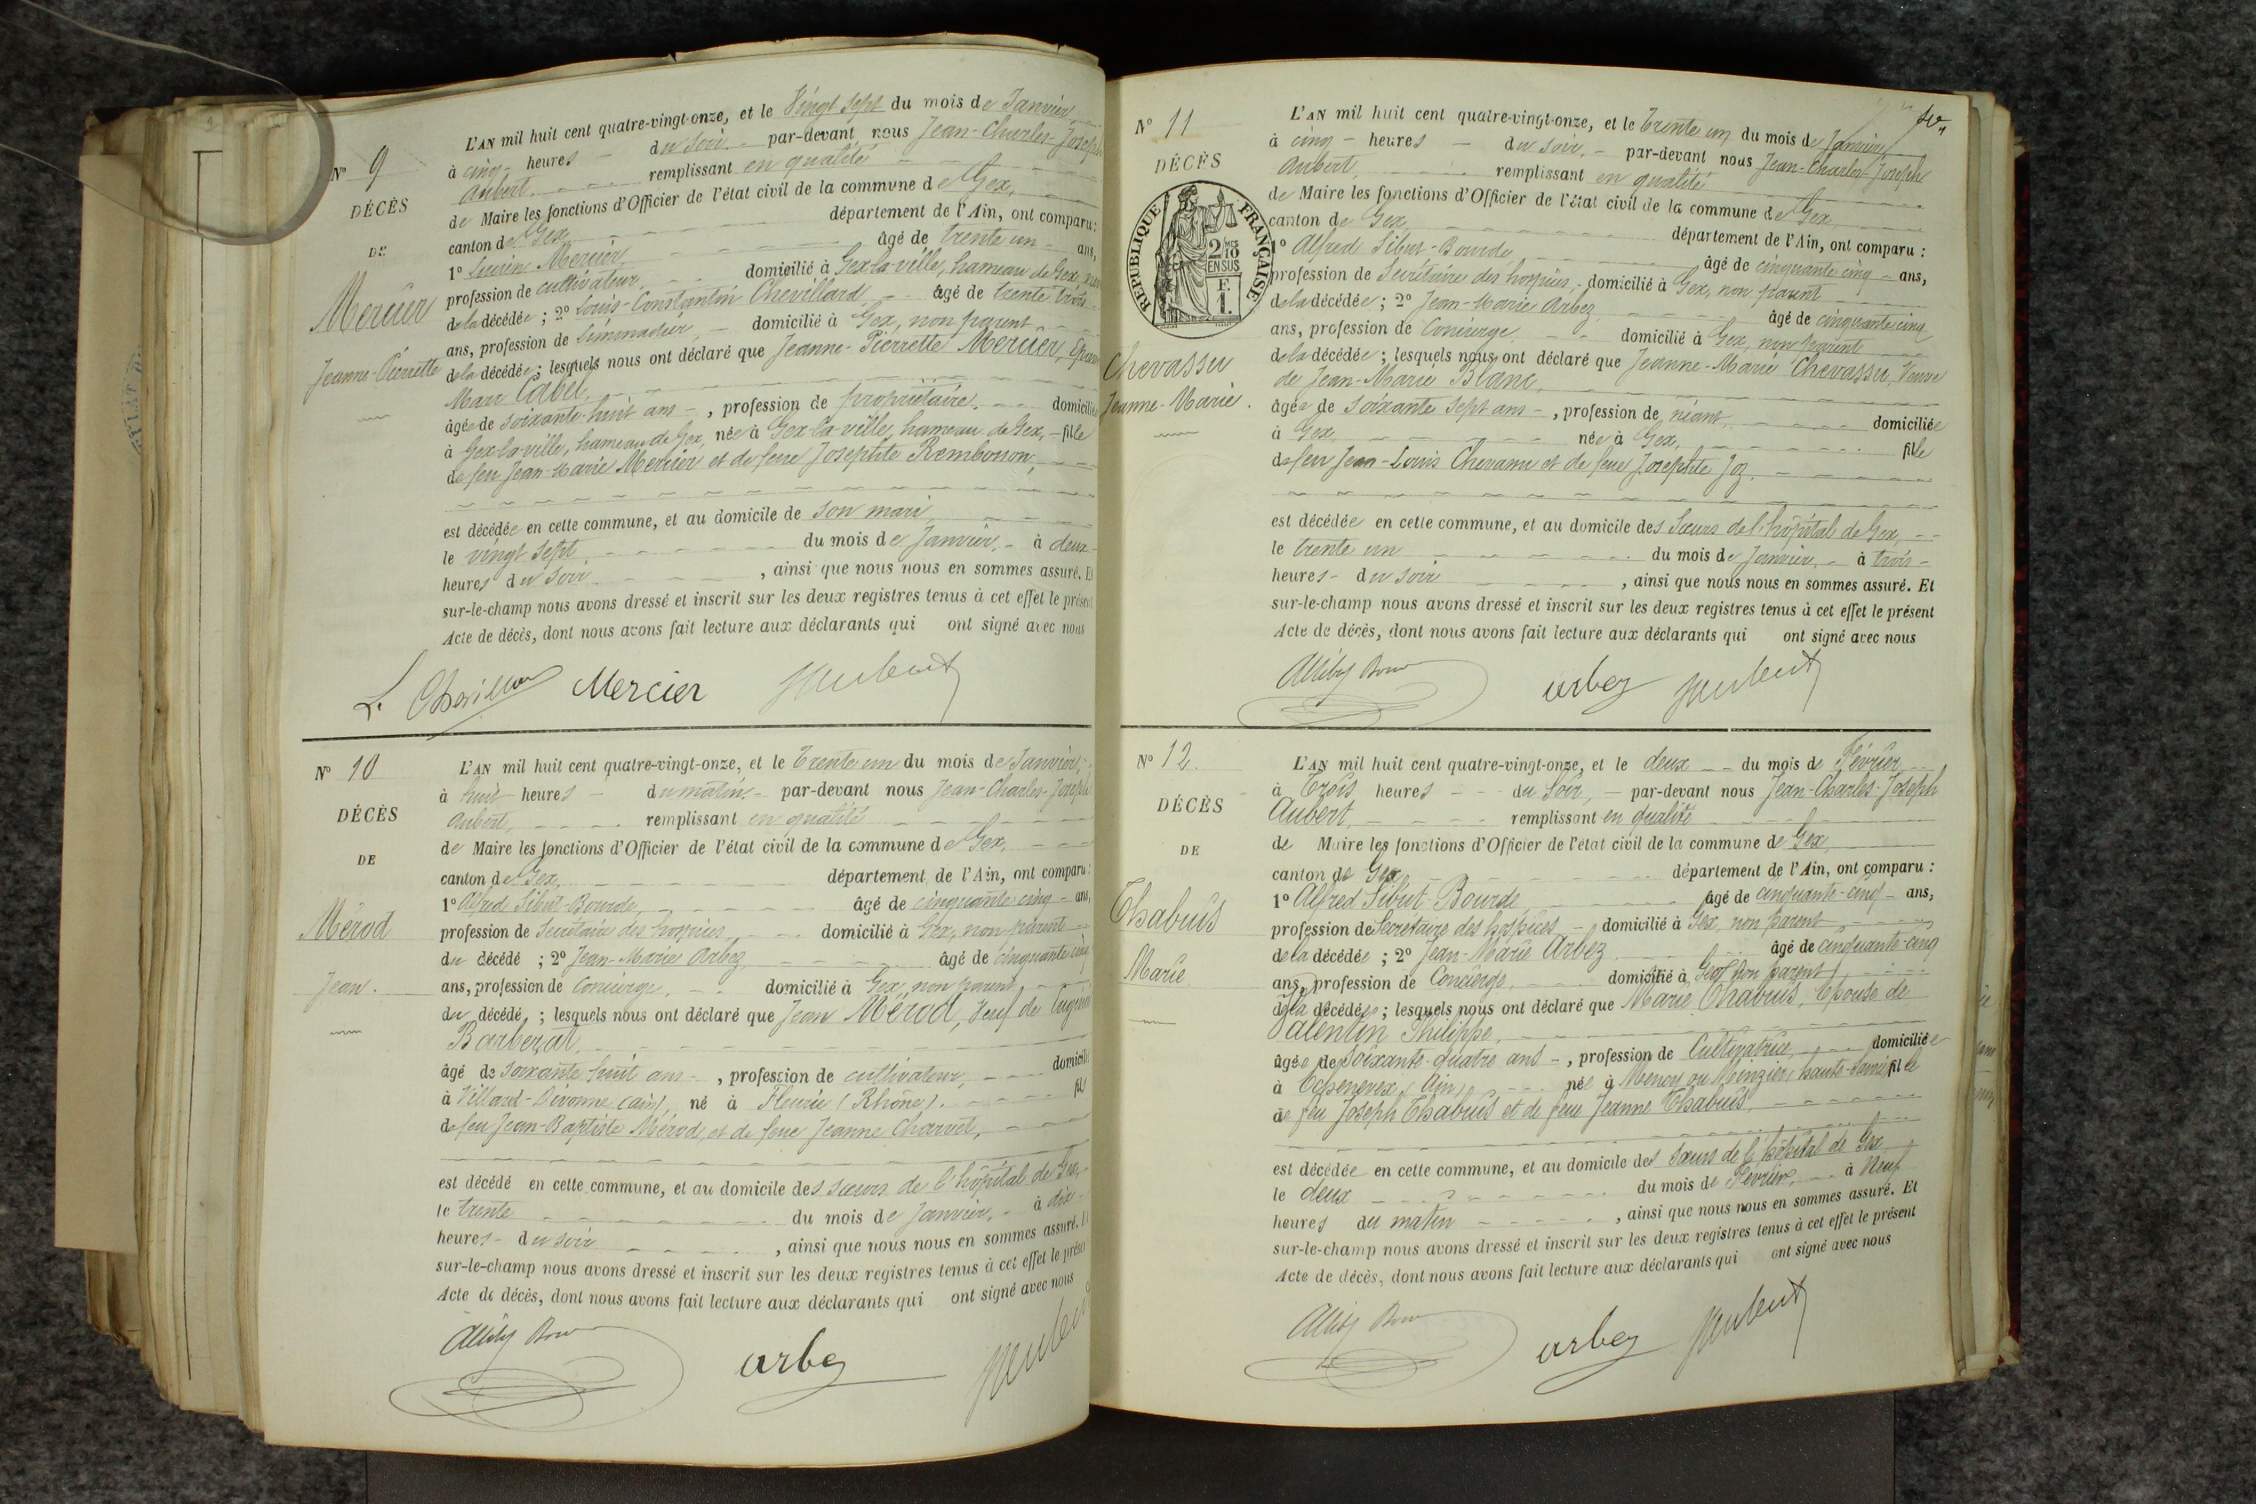 N° 9
DÉCÈS
DE
Mercier
Jeanne-Pierrette
L'AN mil huit cent quatre-vingt-onze, et le Vingt sept du mois de Janvier,
à cinq heures du soir. par-devant nous Jean-Charles-Joseph
Aubert, remplissant en qualité
de Maire les fonctions d'Officier de l'état civil de la commune de Gex,
canton de Gex, département de l'Ain, ont comparu :
1° Mercier âgé de trente un ans,
profession de cultivateur, domicilié à Gex-la-ville, hameau de Gex,
de la décédée ; 2° Louis-Constantin Chevillard, âgé de trente trois
ans, profession de domicilié à Gex, non parent
de la décédée ; lesquels nous ont déclaré que Jeanne-Pierrette Mercier,
Cabel,
âgée de soixante-huit ans, profession de propriétaire, domiciliée
à Gex-la-ville, hameau de Gex, née à Gex-la-ville, hameau de Gex, fille
de feu Jean-Marie Mercier et de feue Josephte Rembosson,
est décédée en cette commune, et au domicile de son mari
le vingt sept du mois de Janvier, à deux
heures du soir, ainsi que nous nous en sommes assuré. Et
sur-le-champ nous avons dressé et inscrit sur les deux registres tenus à cet effet le présent
Acte de décès, dont nous avons fait lecture aux déclarants qui ont signé avec nous
Mercier
N° 10
DÉCÈS
DE
Mérod
Jean.
L'AN mil huit cent quatre-vingt-onze, et le Trente un du mois de Janvier,
à huit heures du matin, par-devant nous Jean-Charles-Joseph
Aubert, remplissant en qualité
de Maire les fonctions d'Officier de l'état civil de la commune de Gex,
canton de Gex, département de l'Ain, ont comparu :
1° Alfred Sibut-Bourde, âgé de cinquante cinq ans,
profession de Secrétaire des hospices, domicilié à Gex, non parent
du décédé ; 2° Jean-Marie Arbez, âgé de cinquante cinq
ans, profession de Concierge, domicilié à Gex, non parent
du décédé ; lesquels nous ont déclaré que Jean Mérod, Veuf de
Barberat,
âgé de soixante huit ans, profession de cultivateur, domicilié
à Villard-Divonne (ain), né à Fleurie (Rhône). fils
de feu Jean-Baptiste Mérod, et de feue Jeanne Charvet,
est décédé en cette commune, et au domicile des sœurs de l'hôpital de Gex,
le trente du mois de Janvier, à dix
heures du soir, ainsi que nous nous en sommes assuré. Et
sur-le-champ nous avons dressé et inscrit sur les deux registres tenus à cet effet le présent
Acte de décès, dont nous avons fait lecture aux déclarants qui ont signé avec nous
arbez
N° 11
DÉCÈS
RÉPUBLIQUE FRANÇAISE
2/10 EN SUS
F. 1.
Chevassu
Jeanne-Marie.
L'AN mil huit cent quatre-vingt-onze, et le Trente un du mois de Janvier
à cinq heures du soir. par-devant nous Jean-Charles-Joseph
Aubert, remplissant en qualité
de Maire les fonctions d'Officier de l'état civil de la commune de Gex
canton de Gex, département de l'Ain, ont comparu :
1° Alfred Sibut-Bourde, âgé de cinquante cinq ans,
profession de Secrétaire des hospices, domicilié à Gex, non parent
de la décédée ; 2° Jean-Marie Arbez âgé de cinquante cinq
ans, profession de Concierge, domicilié à Gex, non parent
de la décédée ; lesquels nous ont déclaré que Jeanne-Marie Chevassu, Veuve
de Jean-Marie Blanc,
âgée de soixante sept ans, profession de néant, domiciliée
à Gex, née à Gex, fille
de feu Jean-Louis Chevassu et de feue Josephte Joz,
est décédée en cette commune, et au domicile des Sœurs de l'hôpital de Gex,
le trente un du mois de Janvier, à trois
heures du soir, ainsi que nous nous en sommes assuré. Et
sur-le-champ nous avons dressé et inscrit sur les deux registres tenus à cet effet le présent
Acte de décès, dont nous avons fait lecture aux déclarants qui ont signé avec nous
arbez
N° 12
DÉCÈS
DE
Chabuis
Marie
L'AN mil huit cent quatre-vingt-onze, et le deux du mois de Février
à Trois heures du Soir, par-devant nous Jean-Charles-Joseph
Aubert, remplissant en qualité
de Maire les fonctions d'Officier de l'état civil de la commune de Gex
canton de Gex département de l'Ain, ont comparu :
1° Alfred Sibut-Bourde âgé de cinquante-cinq ans,
profession de Secrétaire des hospices domicilié à Gex, non parent
de la décédée ; 2° Jean-Marie Arbez âgé de cinquante-cinq
ans, profession de Concierge, domicilié à Gex, non parent,
de la décédée ; lesquels nous ont déclaré que Marie Chabuis, Epouse de
Valentin Philippe,
âgée de Soixante-quatre ans, profession de Cultivatrice, domiciliée
à Echenevex (Ain), née à ou Minzier, haute-Savoie, fille
de feu Joseph Chabuis et de feue Jeanne Chabuis,
est décédée en cette commune, et au domicile des sœurs de l'hôpital de Gex
le deux du mois de Février, à Neuf
heures du matin, ainsi que nous nous en sommes assuré. Et
sur-le-champ nous avons dressé et inscrit sur les deux registres tenus à cet effet le présent
Acte de décès, dont nous avons fait lecture aux déclarants qui ont signé avec nous
arbez